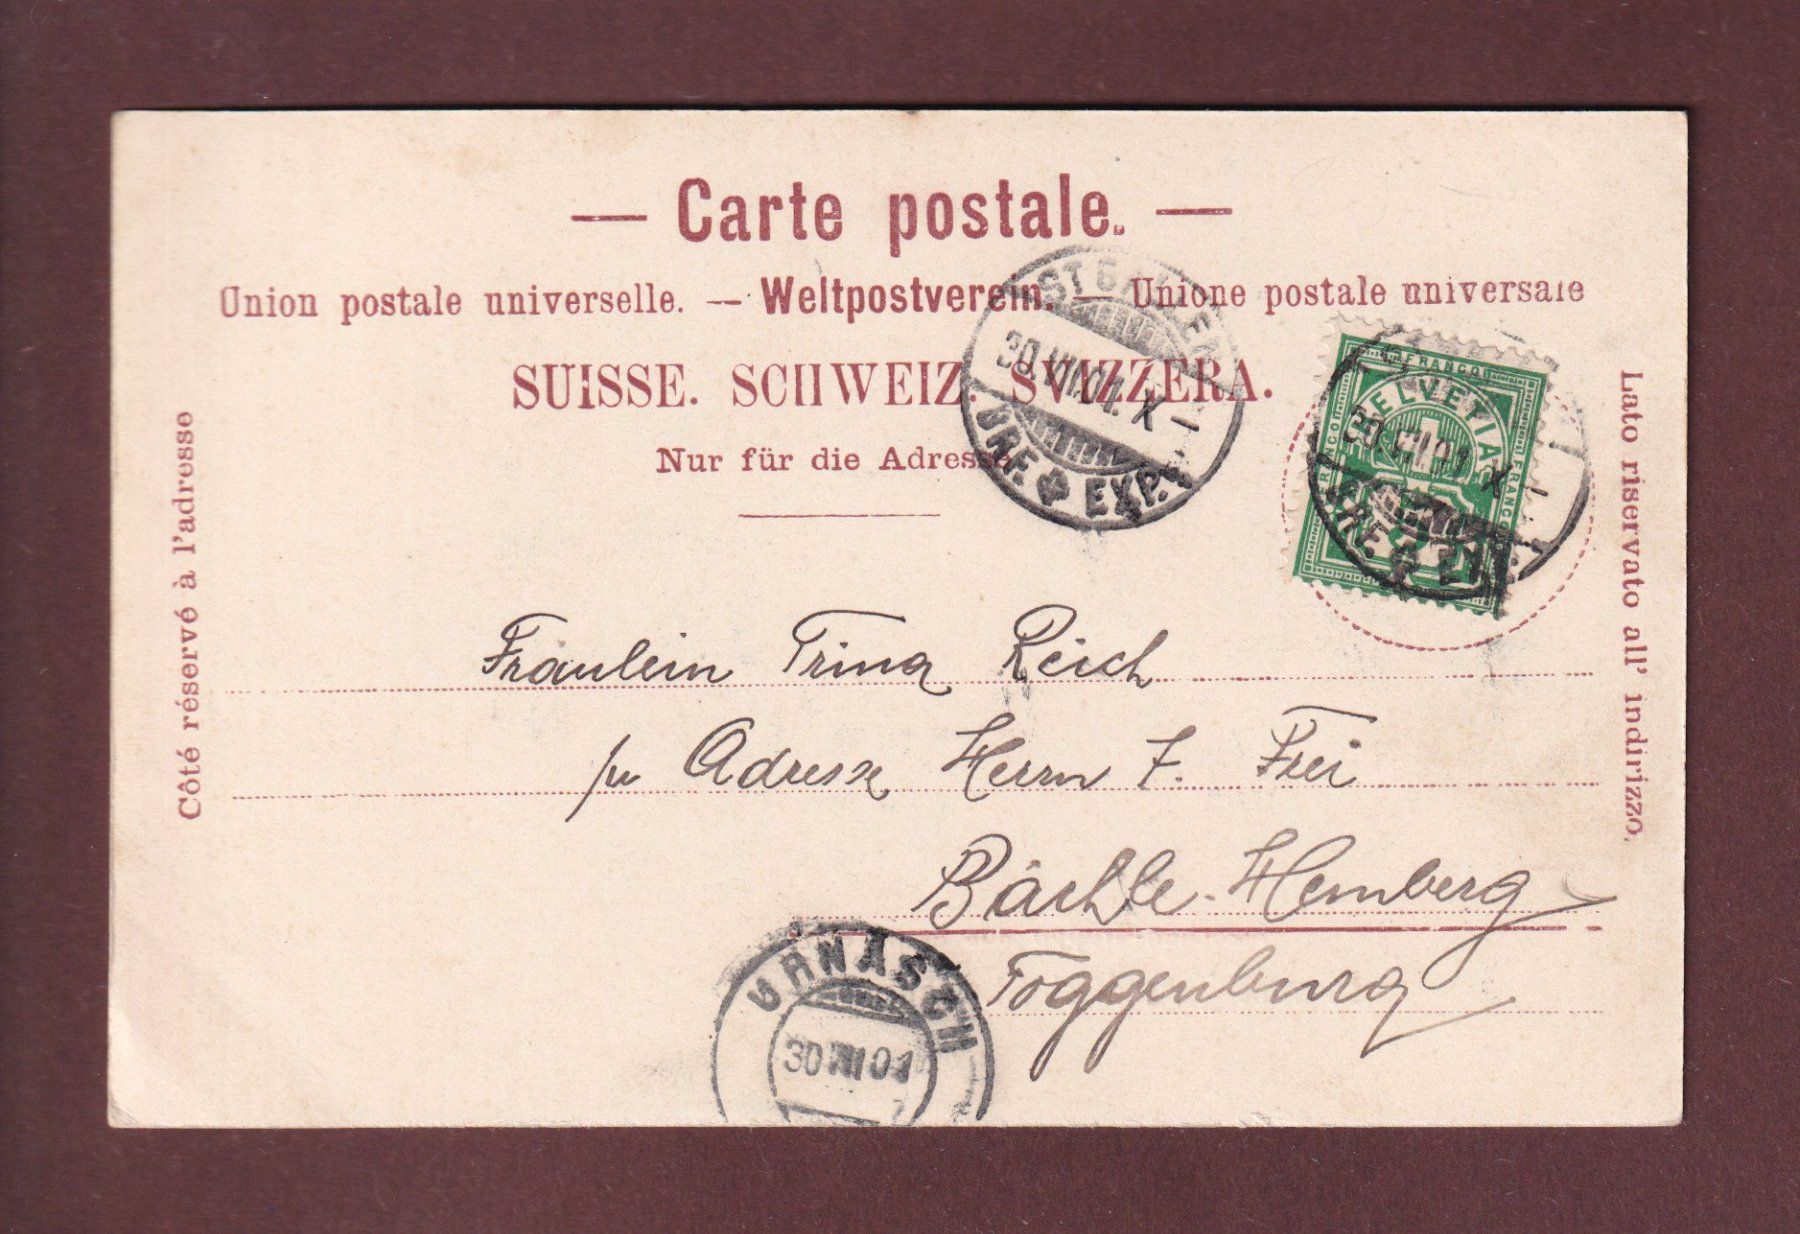 — Carte postale. —
Union postale universelle. — Weltpostverein. — Unione postale universale
SUISSE. SCHWEIZ. SVIZZERA.
Nur für die Adresse
Côté réservé à l'adresse
Lato riservato all' indirizzo.
ST GALLEN
30.VII.01. X
BRF. EXP.
FRANCO
HELVETIA
FRANCO
FRANCO
5
30.VII.01 X
BRF. EXP.
Fräulein Trina Reich
pr Adresse Herrn F. Frei
Bächle-Hemberg
Toggenburg
URNÄSCH
30 VII 01